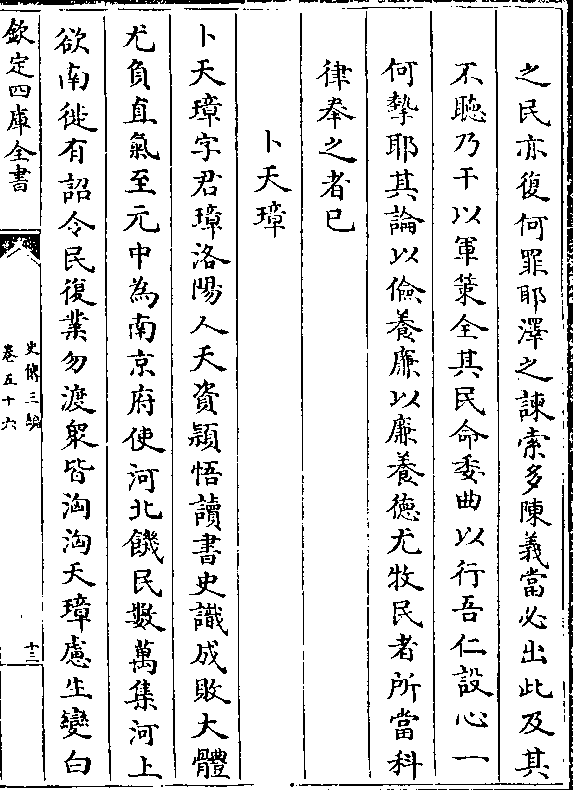 之民亦復何罪耶澤之諫索多陳義當必出此及其
不聽乃干以軍䇿全其民命委曲以行吾仁設心一
何摯耶其論以儉養廉以廉養德尤牧民者所當科
律奉之者已
卜天璋
卜天璋字君璋洛陽人天資穎悟讀書史識成敗大體
尤負直氣至元中為南京府使河北饑民數萬集河上
欲南徙有詔令民復業勿渡衆皆洶洶天璋慮生變白
欽定四庫全書
史傳三編
卷五十六
十三